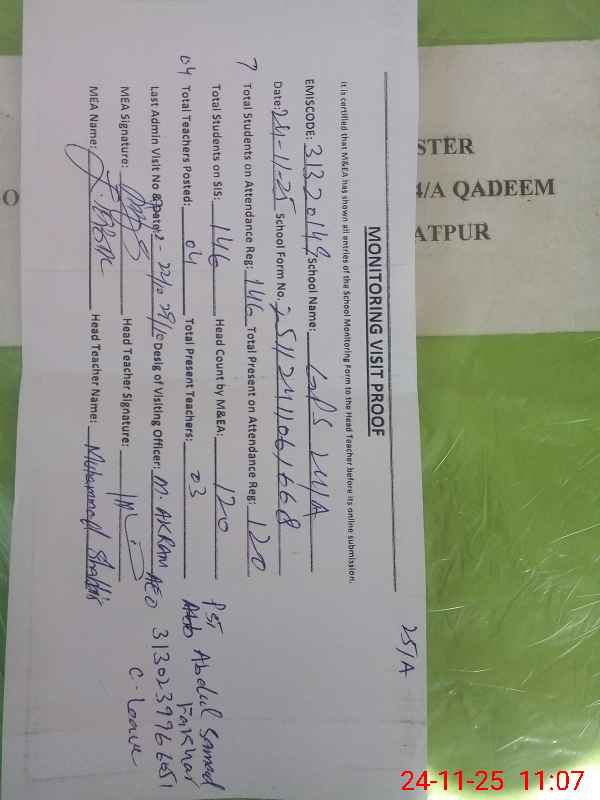 MONITORING VISIT PROOF
It is certified that M&EA has shown all entries of the School Monitoring Form to the Head Teacher before its online submission.
EMISCODE: 31320149 School Name: GPS 24/A
Date: 24-11-25 School Form No. 25112411061668
7 Total Students on Attendance Reg: 146 Total Present on Attendance Reg: 120
Total Students on SIS: 146 Head Count by M&EA: 120
04 Total Teachers Posted: 04 Total Present Teachers: 03
Last Admin Visit No &Date: Desig of Visiting Officer: M. AKRAM AEO
MEA Signature: Head Teacher Signature:
MEA Name: Head Teacher Name: Muhammad
25/A
PST
Abdul Samad
Fakhar
C-leave
STER
4/A QADEEM
ATPUR
24-11-25 11:07